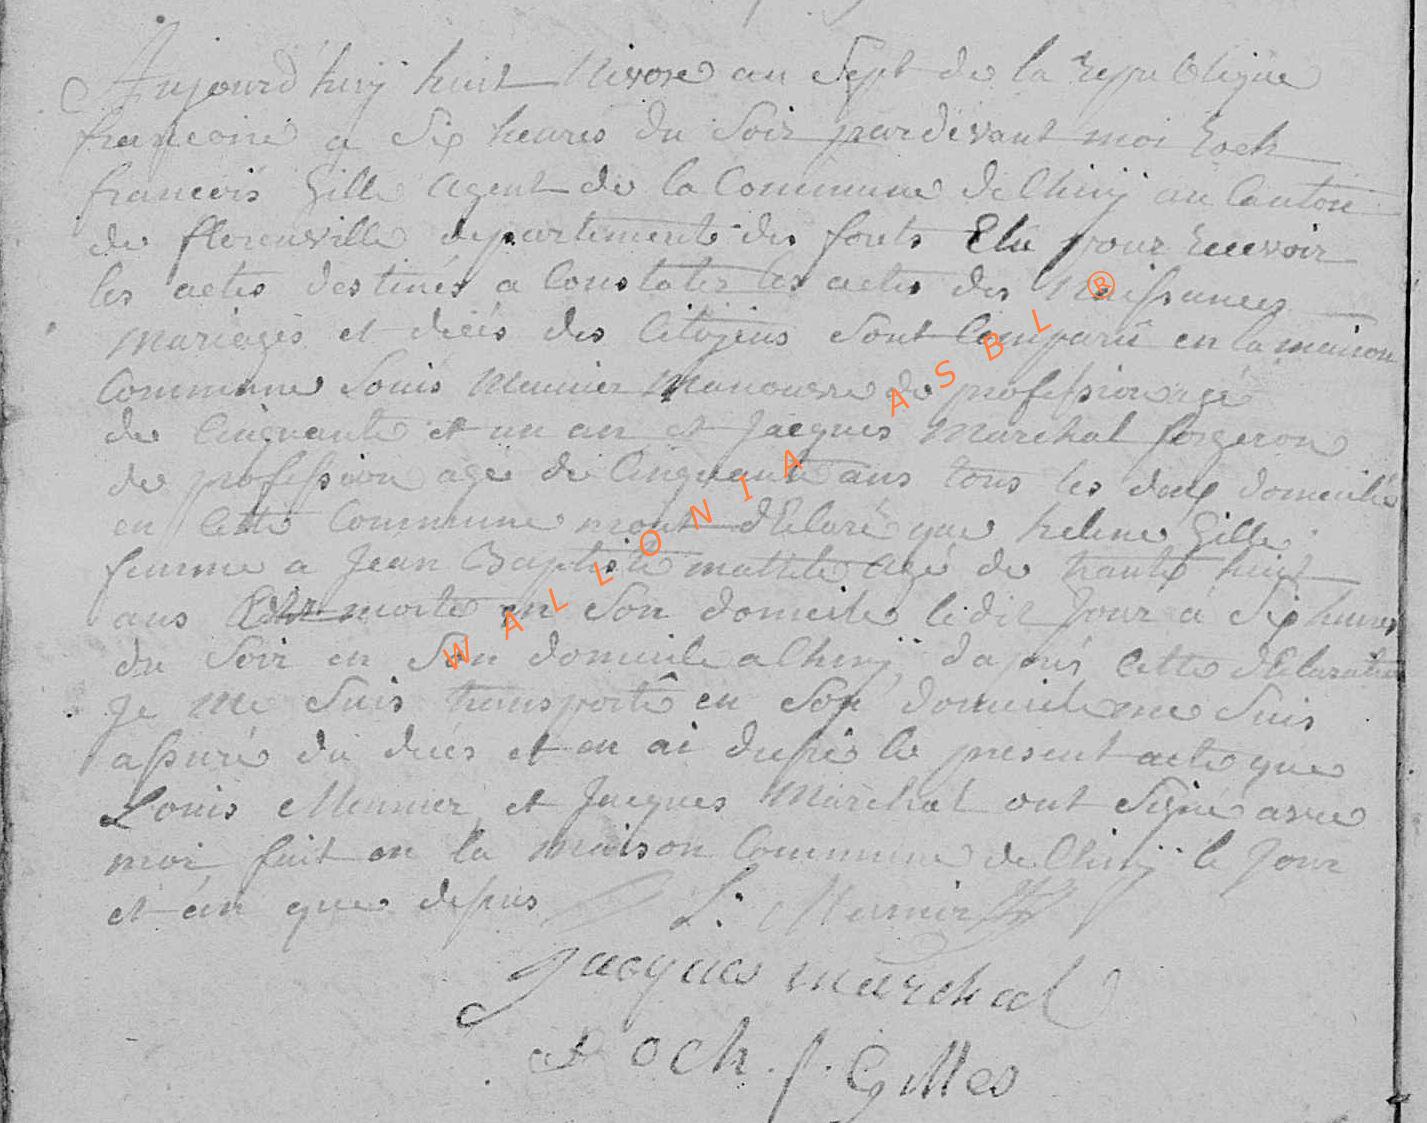 Aujourd'huÿ huit Nivose an Sept de la Republique
francoise a Six heures du Soir pardevant moi Roch
francois Gille Agent de la Commune de Chinÿ au Canton
de florenville departement des forets Elu pour recevoir
les actes destinés a Constater les actes des Naissances
mariages et décés des Citoÿens Sont Comparû en la maison
Commune Louis Meunier Manouvre de profession agé
de Cinquante et un an et Jacques Marchal forgeron
de profession agé de Cinquante ans tous les deux domicilié
en Cette Commune mont déClaré que helene Gille
femme a Jean Baptiste mathile agé de trante huit
ans morte en Son domicile ledit Jour a Six heures
du Soir en Son domicile a Chinÿ, dapres Cette déClaration
Je Me Suis transportê en Son domicile me Suis
assuré du décés et en ai dressé le present acte que
Louis Meunier et Jacques Marchal ont Signé avec
moi fait en la Maison Commune de Chinÿ le Jour
et an que depus L: Meunier
Jacques marchal
Roch . f . Gilles
WALLONIA ASBL ®